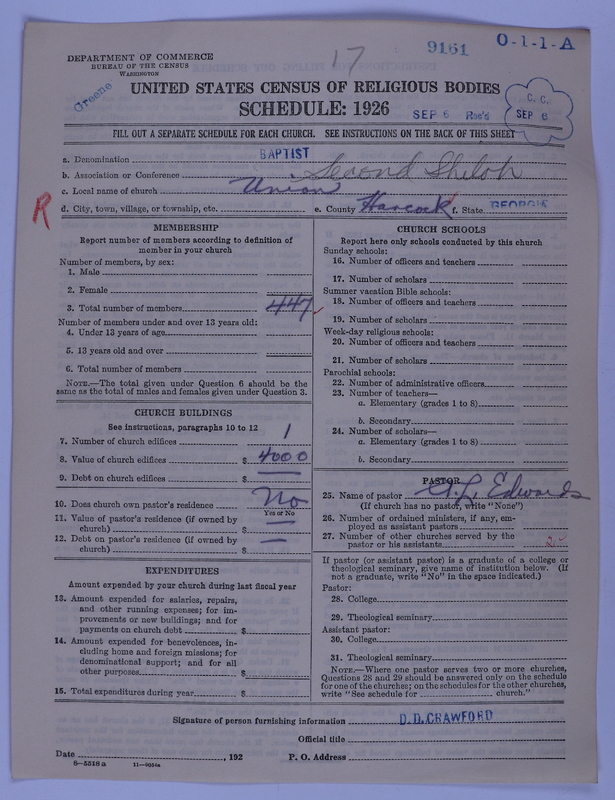 17
9161
O-1-1-A
DEPARTMENT OF COMMERCE
BUREAU OF THE CENSUS
WASHINGTON
Greene
UNITED STATES CENSUS OF RELIGIOUS BODIES
SCHEDULE: 1926
SEP 6 Rec'd
C. C.
SEP 6
FILL OUT A SEPARATE SCHEDULE FOR EACH CHURCH. SEE INSTRUCTIONS ON THE BACK OF THIS SHEET
a. Denomination BAPTIST
b. Association or Conference Second Shiloh
c. Local name of church Union
R
d. City, town, village, or township, etc. e. County Hancock f. State GEORGIA
MEMBERSHIP
Report number of members according to definition of member in your church
Number of members, by sex:
1. Male
2. Female
3. Total number of members 447
Number of members under and over 13 years old:
4. Under 13 years of age
5. 13 years old and over
6. Total number of members
NOTE.—The total given under Question 6 should be the
same as the total of males and females given under Question 3.
CHURCH BUILDINGS
See instructions, paragraphs 10 to 12
7. Number of church edifices 1
8. Value of church edifices $ 4000
9. Debt on church edifices $ —
10. Does church own pastor's residence No
Yes or No
11. Value of pastor's residence (if owned by
church) $ —
12. Debt on pastor's residence (if owned by
church) $ —
EXPENDITURES
Amount expended by your church during last fiscal year
13. Amount expended for salaries, repairs,
and other running expenses; for im-
provements or new buildings; and for
payments on church debt $
14. Amount expended for benevolences, in-
cluding home and foreign missions; for
denominational support; and for all
other purposes $
15. Total expenditures during year $
CHURCH SCHOOLS
Report here only schools conducted by this church
Sunday schools:
16. Number of officers and teachers
17. Number of scholars
Summer vacation Bible schools:
18. Number of officers and teachers
19. Number of scholars
Week-day religious schools:
20. Number of officers and teachers
21. Number of scholars
Parochial schools:
22. Number of administrative officers
23. Number of teachers—
a. Elementary (grades 1 to 8)
b. Secondary
24. Number of scholars—
a. Elementary (grades 1 to 8)
b. Secondary
PASTOR
25. Name of pastor Edwards
(If church has no pastor, write "None")
26. Number of ordained ministers, if any, em-
ployed as assistant pastors
27. Number of other churches served by the
pastor or his assistants 2
If pastor (or assistant pastor) is a graduate of a college or
theological seminary, give name of institution below. (If
not a graduate, write "No" in the space indicated.)
Pastor:
28. College
29. Theological seminary
Assistant pastor:
30. College
31. Theological seminary
NOTE.—Where one pastor serves two or more churches,
Questions 28 and 29 should be answered only on the schedule
for one of the churches; on the schedules for the other churches,
write "See schedule for church."
Signature of person furnishing information D. D. CRAWFORD
Official title
Date , 192 P. O. Address
8-5518a 11-9054a